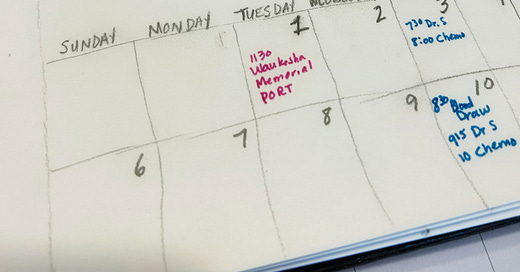 SUNDAY MONDAY TUESDAY
1 2 3
1130
Waukesha
Memorial
PORT
730 Dr. S
8:00 Chemo
6 7 8 9 10
830 Blood
Draw
915 Dr S
10 Chemo